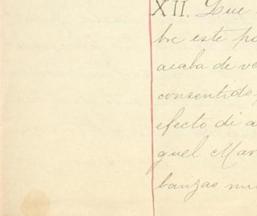 XII. Que
bre este po
acaba de ve
consentido,
efecto di a
guel Mar
banzas mu